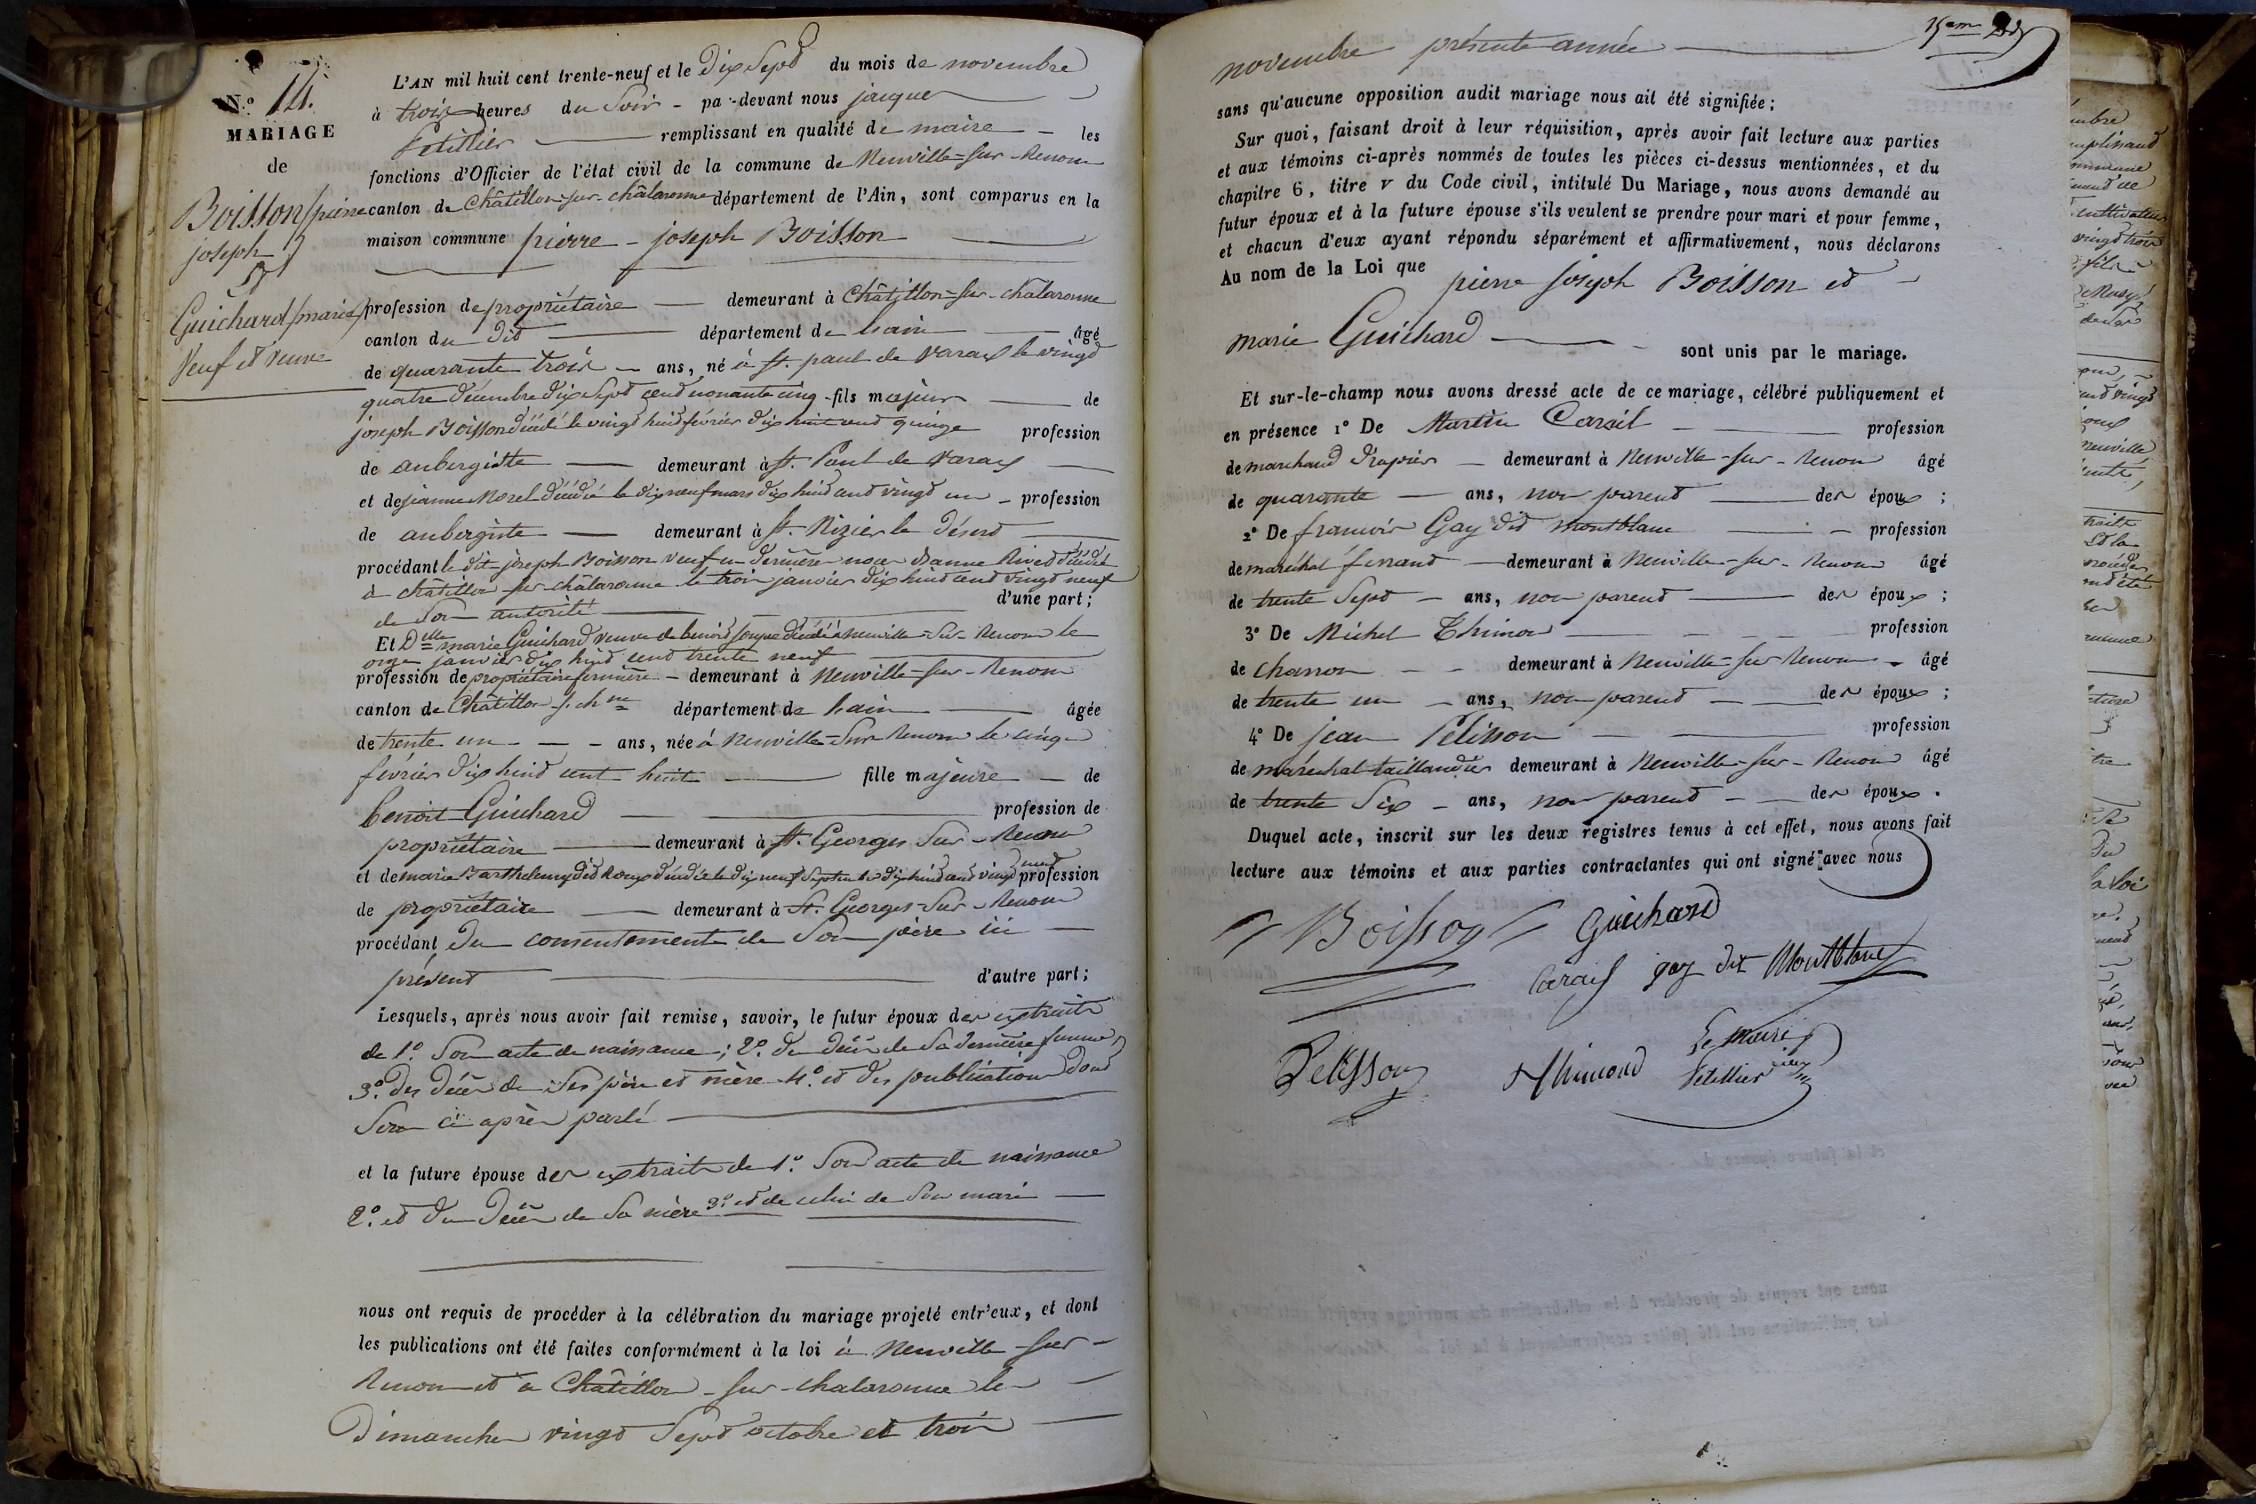 N.º 14.
MARIAGE
de
Boisson/pierre
joseph
et
Guichard/marie/
Veuf et veuve
L'AN mil huit cent trente-neuf et le Dix Sept du mois de novembre
à trois heures du Soir - pa-devant nous jacques
Petillier remplissant en qualité de maire les
fonctions d'Officier de l'état civil de la commune de Neuville-sur-Renom
canton de Châtillon-sur-châlaronne département de l'Ain, sont comparus en la
maison commune pierre-joseph Boisson
profession de propriétaire demeurant à Châtillon-sur-chalaronne
canton du Dit département de Lain âgé
de quarante trois ans, né à St. paul de Varax le vingt
quatre décembre dix sept cent nonante cinq fils majeur de
joseph Boisson décédé le vingt huit février dix huit cent quinze profession
de aubergiste demeurant à St. Paul de Varax
et de jeanne Morel décédée le dix neuf mars dix huit cent vingt un profession
de aubergiste demeurant à St. Nizier le Désert
procédant le dit joseph Boisson veuf en dernière noce
à châtillon sur châlaronne le trois janvier dix huit cent vingt neuf
de Son autorité d'une part;
Et Delle marie Guichard veuve de benoit décédé à Neuville-Sur-Renom le
onze janvier dix huit cent trente neuf
profession de propriétaire fermière demeurant à Neuville-sur-Renom
canton de Châtillon s. chne département de Lain âgée
de trente un ans, née à Neuville-Sur Renom le cinq
février dix huit cent huit fille majeure de
benoit Guichard profession de
propriétaire demeurant à St. Georges Sur-Renom
et de marie Barthelemy dit Roux décédée le dix neuf septembre dix huit cent vingt neuf profession
de propriétaire demeurant à St. Georges-Sur-Renom
procédant du consentement de Son père ici
présent d'autre part;
Lesquels, après nous avoir fait remise, savoir, le futur époux des extraits
de 1.º Son acte de naissance; 2.º du décès de Sa dernière femme,
3.º des décès de Ses père et mère 4.º et des publications dont
Sera ci après parlé
et la future épouse des extraits de 1.º Son acte de naissance
2.º et du décès de Sa mère 3.º et de celui de Son mari
nous ont requis de procéder à la célébration du mariage projeté entr'eux, et dont
les publications ont été faites conformément à la loi à Neuville-sur-
Renom et à Châtillon-sur-chalaronne le
Dimanche vingt Sept octobre et trois
novembre présente année
sans qu'aucune opposition audit mariage nous ait été signifiée;
Sur quoi, faisant droit à leur réquisition, après avoir fait lecture aux parties
et aux témoins ci-après nommés de toutes les pièces ci-dessus mentionnées, et du
chapitre 6, titre v du Code civil, intitulé Du Mariage, nous avons demandé au
futur époux et à la future épouse s'ils veulent se prendre pour mari et pour femme,
et chacun d'eux ayant répondu séparément et affirmativement, nous déclarons
Au nom de la Loi que pierre joseph Boisson et
marie Guichard sont unis par le mariage.
Et sur-le-champ nous avons dressé acte de ce mariage, célébré publiquement et
en présence 1º De Martin Carail profession
de marchand drapier demeurant à Neuville-sur-Renom âgé
de quarante ans, non parent des époux;
2º De francois Gay dit montblanc profession
de maréchal ferrant demeurant à Neuville-sur-Renom âgé
de trente Sept ans, non parent des époux;
3º De Michel Thimon profession
de charron demeurant à Neuville-sur Renom âgé
de trente un ans, non parent des époux;
4º De jean Pelisson profession
de maréchal taillandier demeurant à Neuville-sur-Renom âgé
de trente Six ans, non parent des époux.
Duquel acte, inscrit sur les deux registres tenus à cet effet, nous avons fait
lecture aux témoins et aux parties contractantes qui ont signé avec nous
Boisson Guichard
Carail gay dit Montblanc
Pelisson Thimond Le maire
Petillier